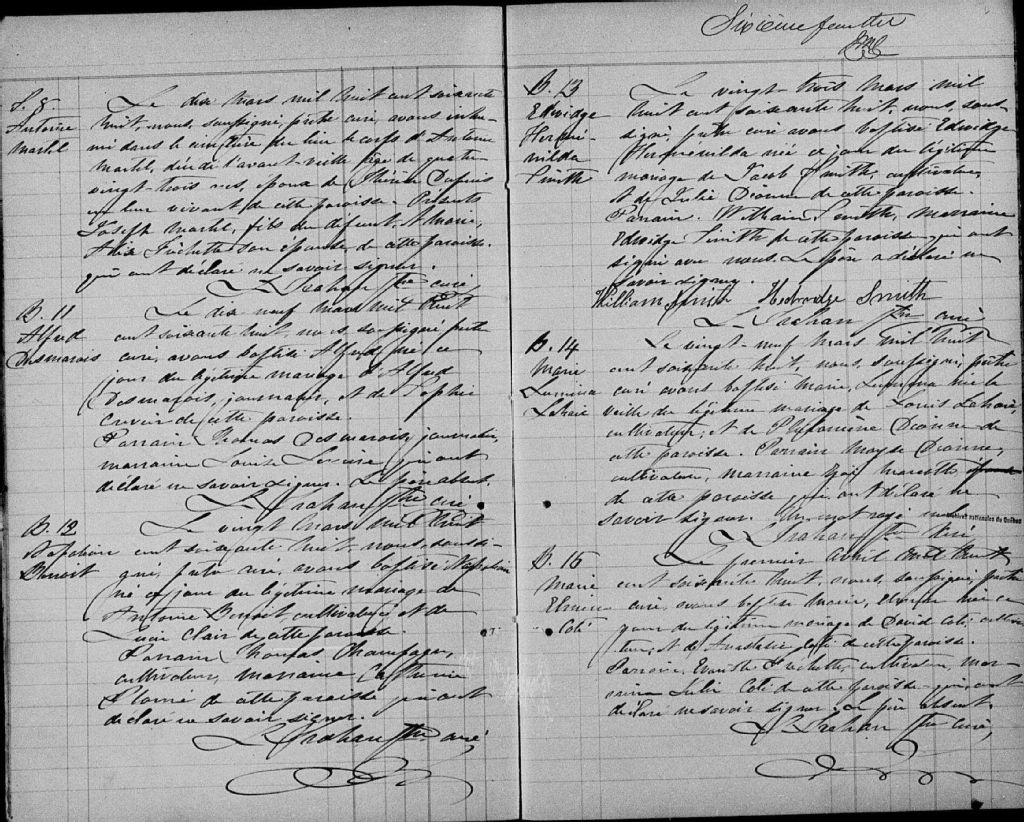 S. 8
Antoine
Martel
Le dix Mars mil huit cent soixante
huit, nous, soussigné, prêtre curé, avons inhu-
mé dans le cimetière du lieu le corps d'Antoine
Martel, décédé l'avant-veille âgé de quatre-
vingt-trois ans, époux de Dupuis
en leur vivant de cette paroisse. Présents
Joseph Martel, fils du défunt, Marie,
Frechette son épouse de cette paroisse
qui ont déclaré ne savoir signer.
L. Trahan Ptre curé
B. 11
Alfred
Desmarais
Le dix neuf Mars mil huit
cent soixante huit nous soussigné prêtre
curé, avons baptisé Alfred, né ce
jour du légitime mariage d'Alfred
Desmarais, journalier, et de Sophie
de cette paroisse.
Parrain Thomas Desmarais, journalier,
marraine Louise qui ont
déclaré ne savoir signer. Le père absent.
L. Trahan Ptre curé
B. 12
Napoléon
Benoit
Le vingt Mars mil huit
cent soixante huit nous, soussi-
gné, prêtre curé, avons baptisé Napoléon
né ce jour du légitime mariage de
Antoine Benoit, cultivateur et de
Lucie Clair de cette paroisse.
Parrain Thomas Champagne,
cultivateur, Marraine Catherine
de cette paroisse qui ont
déclaré ne savoir signer.
L. Trahan Ptre curé
Sixième feuillet
B. 13
Edwidge
Hermé-
nilda
Smith
Le vingt trois Mars mil
huit cent soixante huit, nous, sous-
signé, prêtre curé avons baptisé Edwidge
Herménilda née ce jour du légitime
mariage de Jacob Smith, cultivateur
et de Julie Dionne de cette paroisse.
Parrain William Smith, marraine
Edwidge Smith de cette paroisse qui ont
signé avec nous. Le père a déclaré ne
savoir signer.
William Smith Hedwidge Smith
L. Trahan Ptre curé
B. 14
Marie
Lumina
Lahaie
Le vingt-neuf Mars mil huit
cent soixante huit, nous, soussigné, prêtre
curé avons baptisé Marie, Lumina née la
veille du légitime mariage de Louis Lahaie
cultivateur, et de Philomène Dionne de
cette paroisse. Parrain Moyse Dionne,
cultivateur, marraine
de cette paroisse qui ont déclaré ne
savoir signer. Un mot rayé nul
Archives nationales du Québec
L. Trahan Ptre curé
B. 15
Marie
Coté
Le premier Avril mil huit
cent soixante huit, nous, soussigné, prêtre
curé, avons baptisé Marie, née ce
jour du légitime mariage de David Coté cultiva-
teur, et de Anastasie Coté de cette paroisse.
Parrain, Evariste Frechette, cultivateur, mar-
raine Julie Coté de cette paroisse qui ont
déclaré ne savoir signer. Le père absent.
L. Trahan Ptre Curé